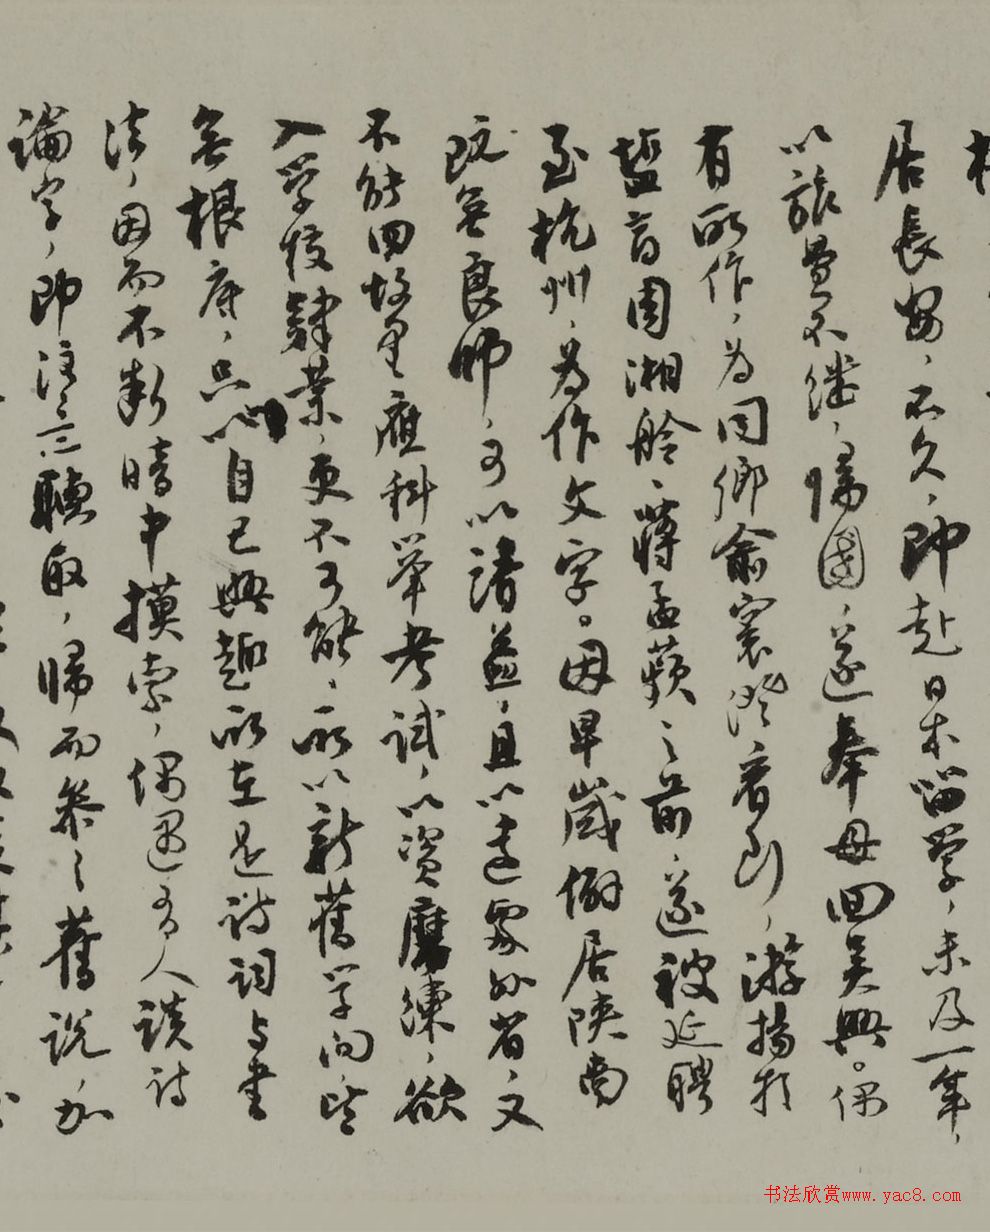 居長安，不久，即赴日本留學，未及一年，
以旅費不繼，歸國，遂奉母回吳興。偶
有所作，為同鄉俞寰澄看到，游揚於
鹽商周湘舲、蔣孟蘋之前，遂被延聘
至杭州，為作文字。因早歲僻居陝南
既無良師，可以請益，且以遠處外省，又
不能回故里應科舉考試，以資磨練，欲
入學校肄業，更不可能，所以新舊學問，皆
無根底，只以自己興趣所在是詩詞與書
法，因而不斷暗中摸索，偶遇有人談詩
論字，即注意聽取，歸而參之舊說，加
书法欣赏www.yac8.com